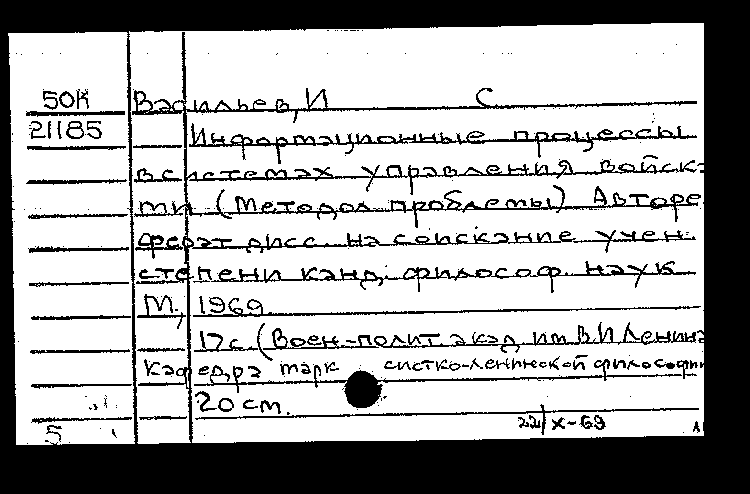 50К Васильев, И С
21185 Информационные процессы
в системах управления войска
ми (Методол проблемы) Авторе
ферат дисс. на соискание учен.
степени канд. философ. наук
М., 1969.
17с. (Воен-полит акад им В.И Ленина
Кафедра марк систско-ленинской философии
20 см.
22/X-69
5